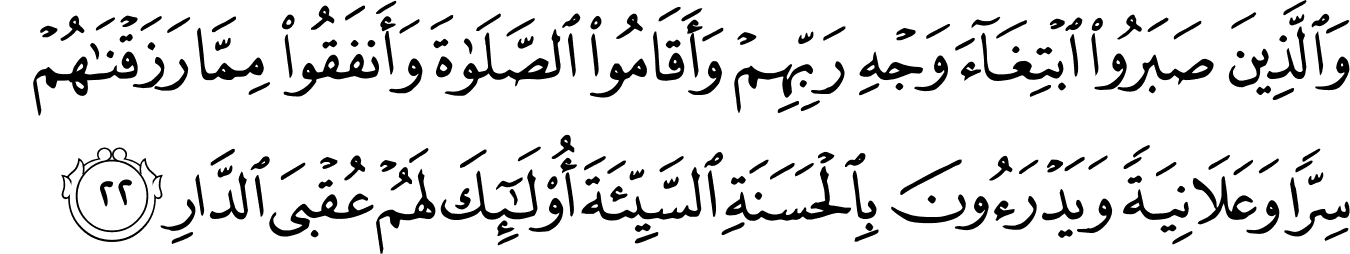 وَٱلَّذِينَ صَبَرُوا۟ ٱبْتِغَآءَ وَجْهِ رَبِّهِمْ وَأَقَامُوا۟ ٱلصَّلَوٰةَ وَأَنفَقُوا۟ مِمَّا رَزَقْنَـٰهُمْ
سِرًّا وَعَلَانِيَةً وَيَدْرَءُونَ بِٱلْحَسَنَةِ ٱلسَّيِّئَةَ أُو۟لَـٰٓئِكَ لَهُمْ عُقْبَى ٱلدَّارِ ٢٢